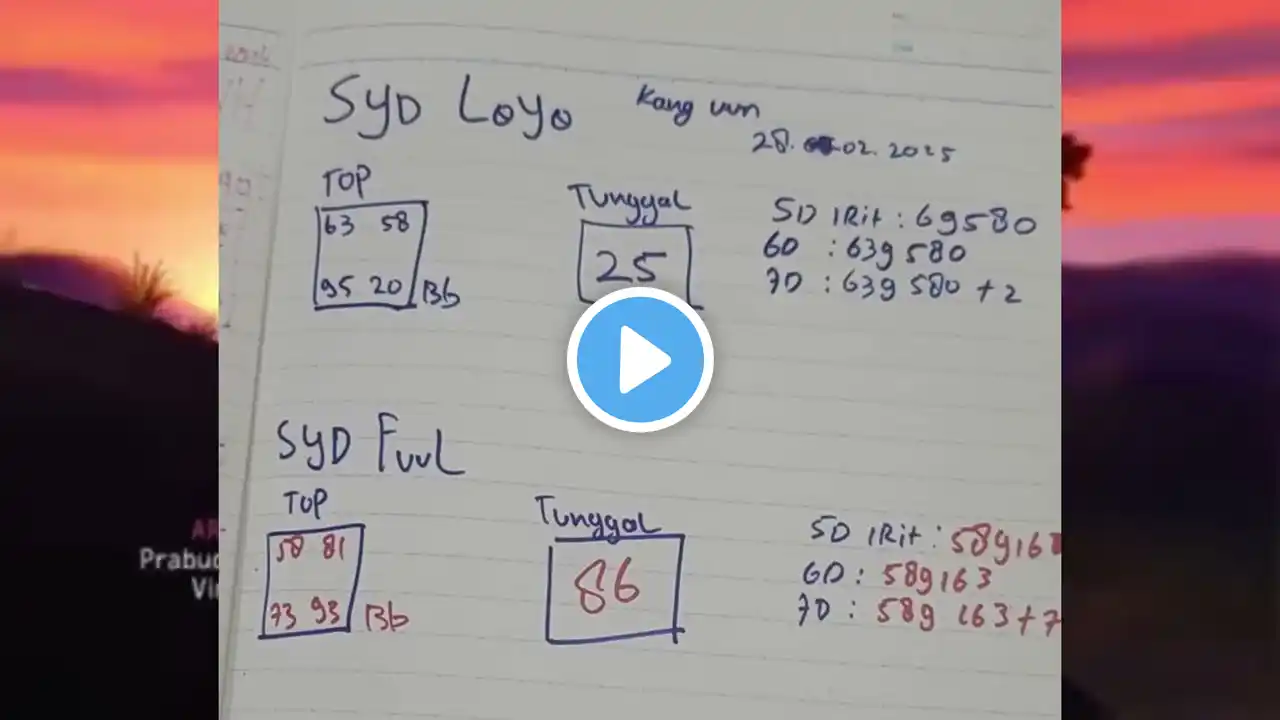 SYD Loyo
Kang uun
28. 02. 2025
TOP
63 58
95 20 Bb
Tunggal
25
5D IRit : 69580
6D : 639 580
7D : 639 580 + 2
SYD FuuL
TOP
58 81
73 93 Bb
Tunggal
86
5D IRit : 589168
6D : 589163
7D : 589 163 + 7
Prabu
Vi